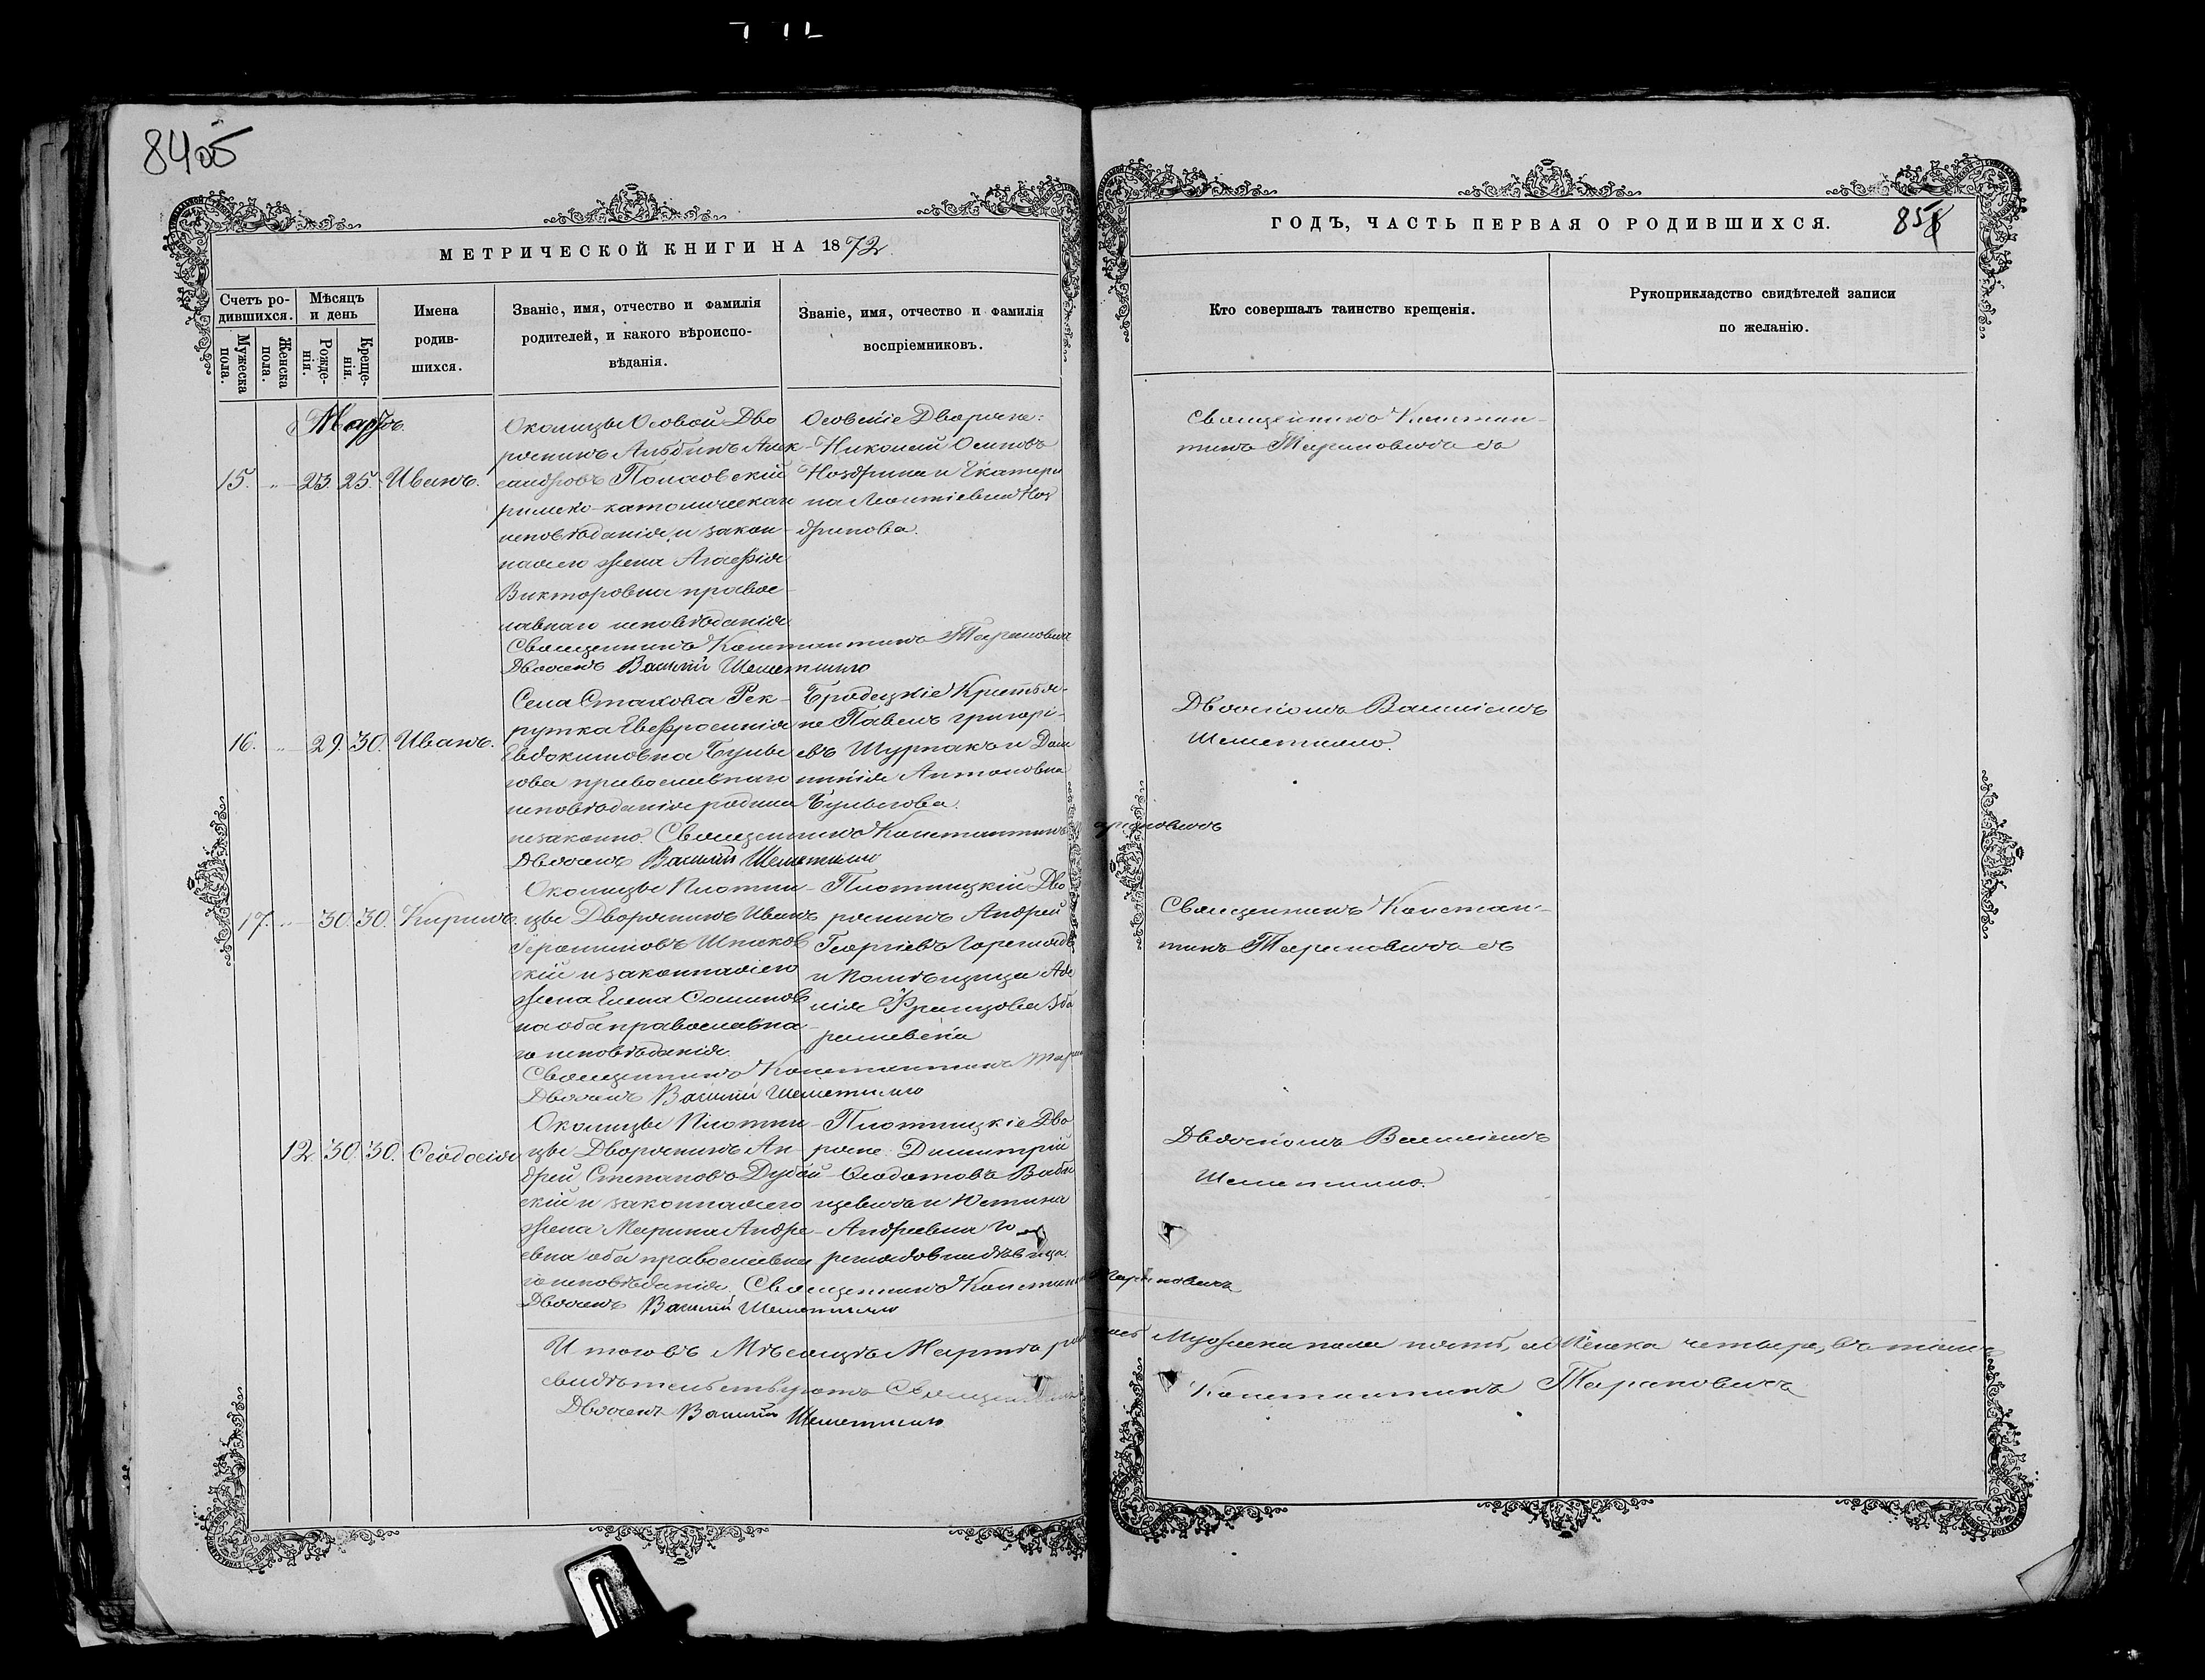 84об
МЕТРИЧЕСКОЙ КНИГИ НА 1872
Счетъ ро-
дившихся.
Мужеска
пола.
Женска
пола.
Мѣсяцъ
и день
Рожде-
нія.
Креще-
нія.
Имена
родив-
шихся.
Званіе, имя, отчество и фамилія
родителей, и какого вѣроиспо-
вѣданія.
Званіе, имя, отчество и фамилія
воспріемниковъ.
Мартъ.
15. „ 23. 25. Иванъ.
Околицы Осовой Дво
рянинъ Альбинъ Алек-
сандровъ
римско-католическаго
исповѣданія, и закон-
ная его жена Агафія
Викторовна правос-
лавнаго исповѣданія
Священникъ Константинъ Тариновичъ
Дьячекъ Василій Шеметилло
Осовскіе Дворяне:
Николай Осиповъ
Ноздринъ и Екатери
на Леонтіевна Ноз
дринова.
16. „ 29. 30. Иванъ.
Села Стахова Рек-
рутка Евфросинія
Евдокимовна Бульы
гова православнаго
исповѣданія родила
незаконно. Священникъ Константинъ Тариновичъ
Дьячекъ Василій Шеметилло
Бродецкіе Крестья-
не Павелъ Григорі-
евъ Шурпакъ и Дом
никія Антоновна
Бульгова.
17. „ 30. 30. Кирилъ.
Околицы Плотни-
цы Дворянинъ Иванъ
Іеронимовъ Шпаков
скій и законная его
жена Елена Осипов
на оба православна-
го исповѣданія.
Священникъ Константинъ Тарин
Дьячекъ Василій Шеметилло
Плотницкій Дво
рянинъ Андрей
Георгіевъ Горегляд
и помѣщица
Францова
12. 30. 30. Ѳеодосія
Околицы Плотни-
цы Дворянинъ Ан-
дрей Степановъ Дубой-
скій и законная его
жена Марина Андре-
евна оба православна
го исповѣданія. Священникъ Константинъ Тариновичъ
Дьячекъ Василій Шеметилло
Плотницкіе Дво
ряне: Димитрій
Ѳеодотовъ Ваби
щевичъ и Юстина
Андреевна Го
реглядовна дѣвица.
Итого въ Мѣсяцѣ Мартѣ родилось Мужеска пола пять, а Женска четыре, въ томъ
свидѣтельствуютъ Священникъ Константинъ Тариновичъ
Дьячекъ Василій Шеметилло
ГОДЪ, ЧАСТЬ ПЕРВАЯ О РОДИВШИХСЯ.
85
Кто совершалъ таинство крещенія.
Рукоприкладство свидѣтелей записи
по желанію.
Священникъ Констан-
тинъ Тариновичъ съ
Дьячкомъ Василіемъ
Шеметилло.
Священникъ Констан-
тинъ Тариновичъ съ
Дьячкомъ Василіемъ
Шеметилло.